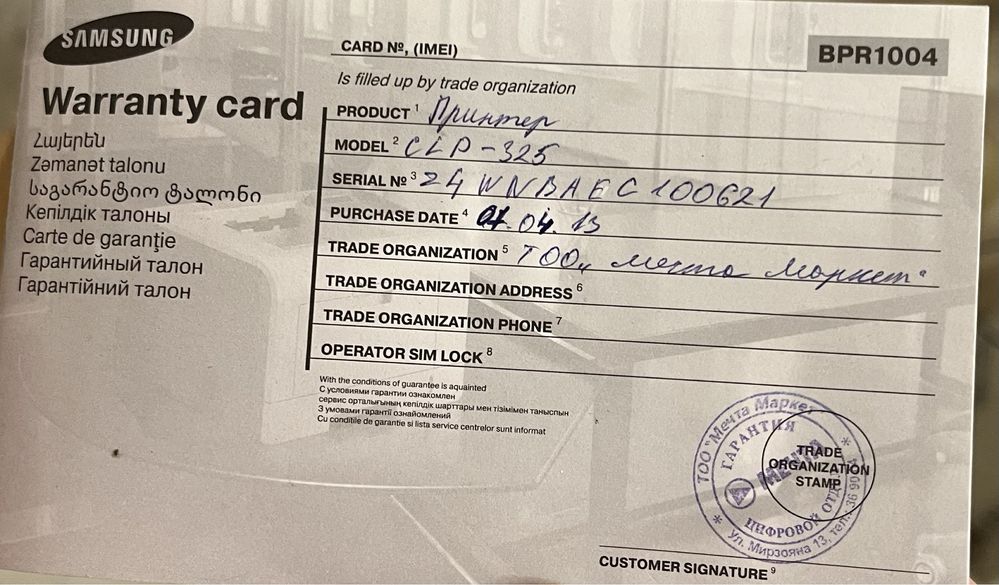 SAMSUNG
Warranty card
Հայերեն
Zəmanət talonu
საგარანტიო ტალონი
Кепілдік талоны
Carte de garanţie
Гарантийный талон
Гарантійний талон
CARD Nº, (IMEI)
BPR1004
Is filled up by trade organization
PRODUCT ¹ Принтер
MODEL ² CLP-325
SERIAL Nº ³ 24WNBAEC100621
PURCHASE DATE ⁴ 04.13
TRADE ORGANIZATION ⁵ ТОО „Мечта Маркет"
TRADE ORGANIZATION ADDRESS ⁶
TRADE ORGANIZATION PHONE ⁷
OPERATOR SIM LOCK ⁸
With the conditions of guarantee is aquainted
С условиями гарантии ознакомлен
сервис орталығының кепілдік шарттары мен тізімімен таныспын
З умовами гарантії ознайомлений
Cu conditile de garantie si lista service centrelor sunt informat
ТОО "Мечта Маркет
* Ул. Мирзояна 13, тел.: 36 90 *
ГАРАНТИЯ
МЕЧТА
ЦИФРОВОЙ
TRADE
ORGANIZATION
STAMP
CUSTOMER SIGNATURE ⁹